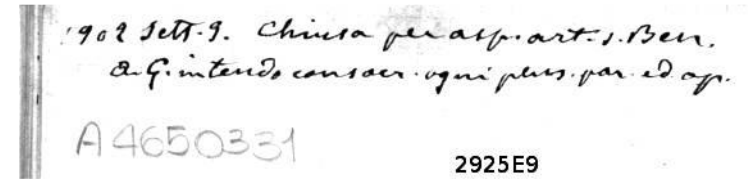 1902 Sett. 9. Chiusa per asp. art. s. Ben.
a G. intendo consacr. ogni pens. par. ed op.
A4650331
2925E9